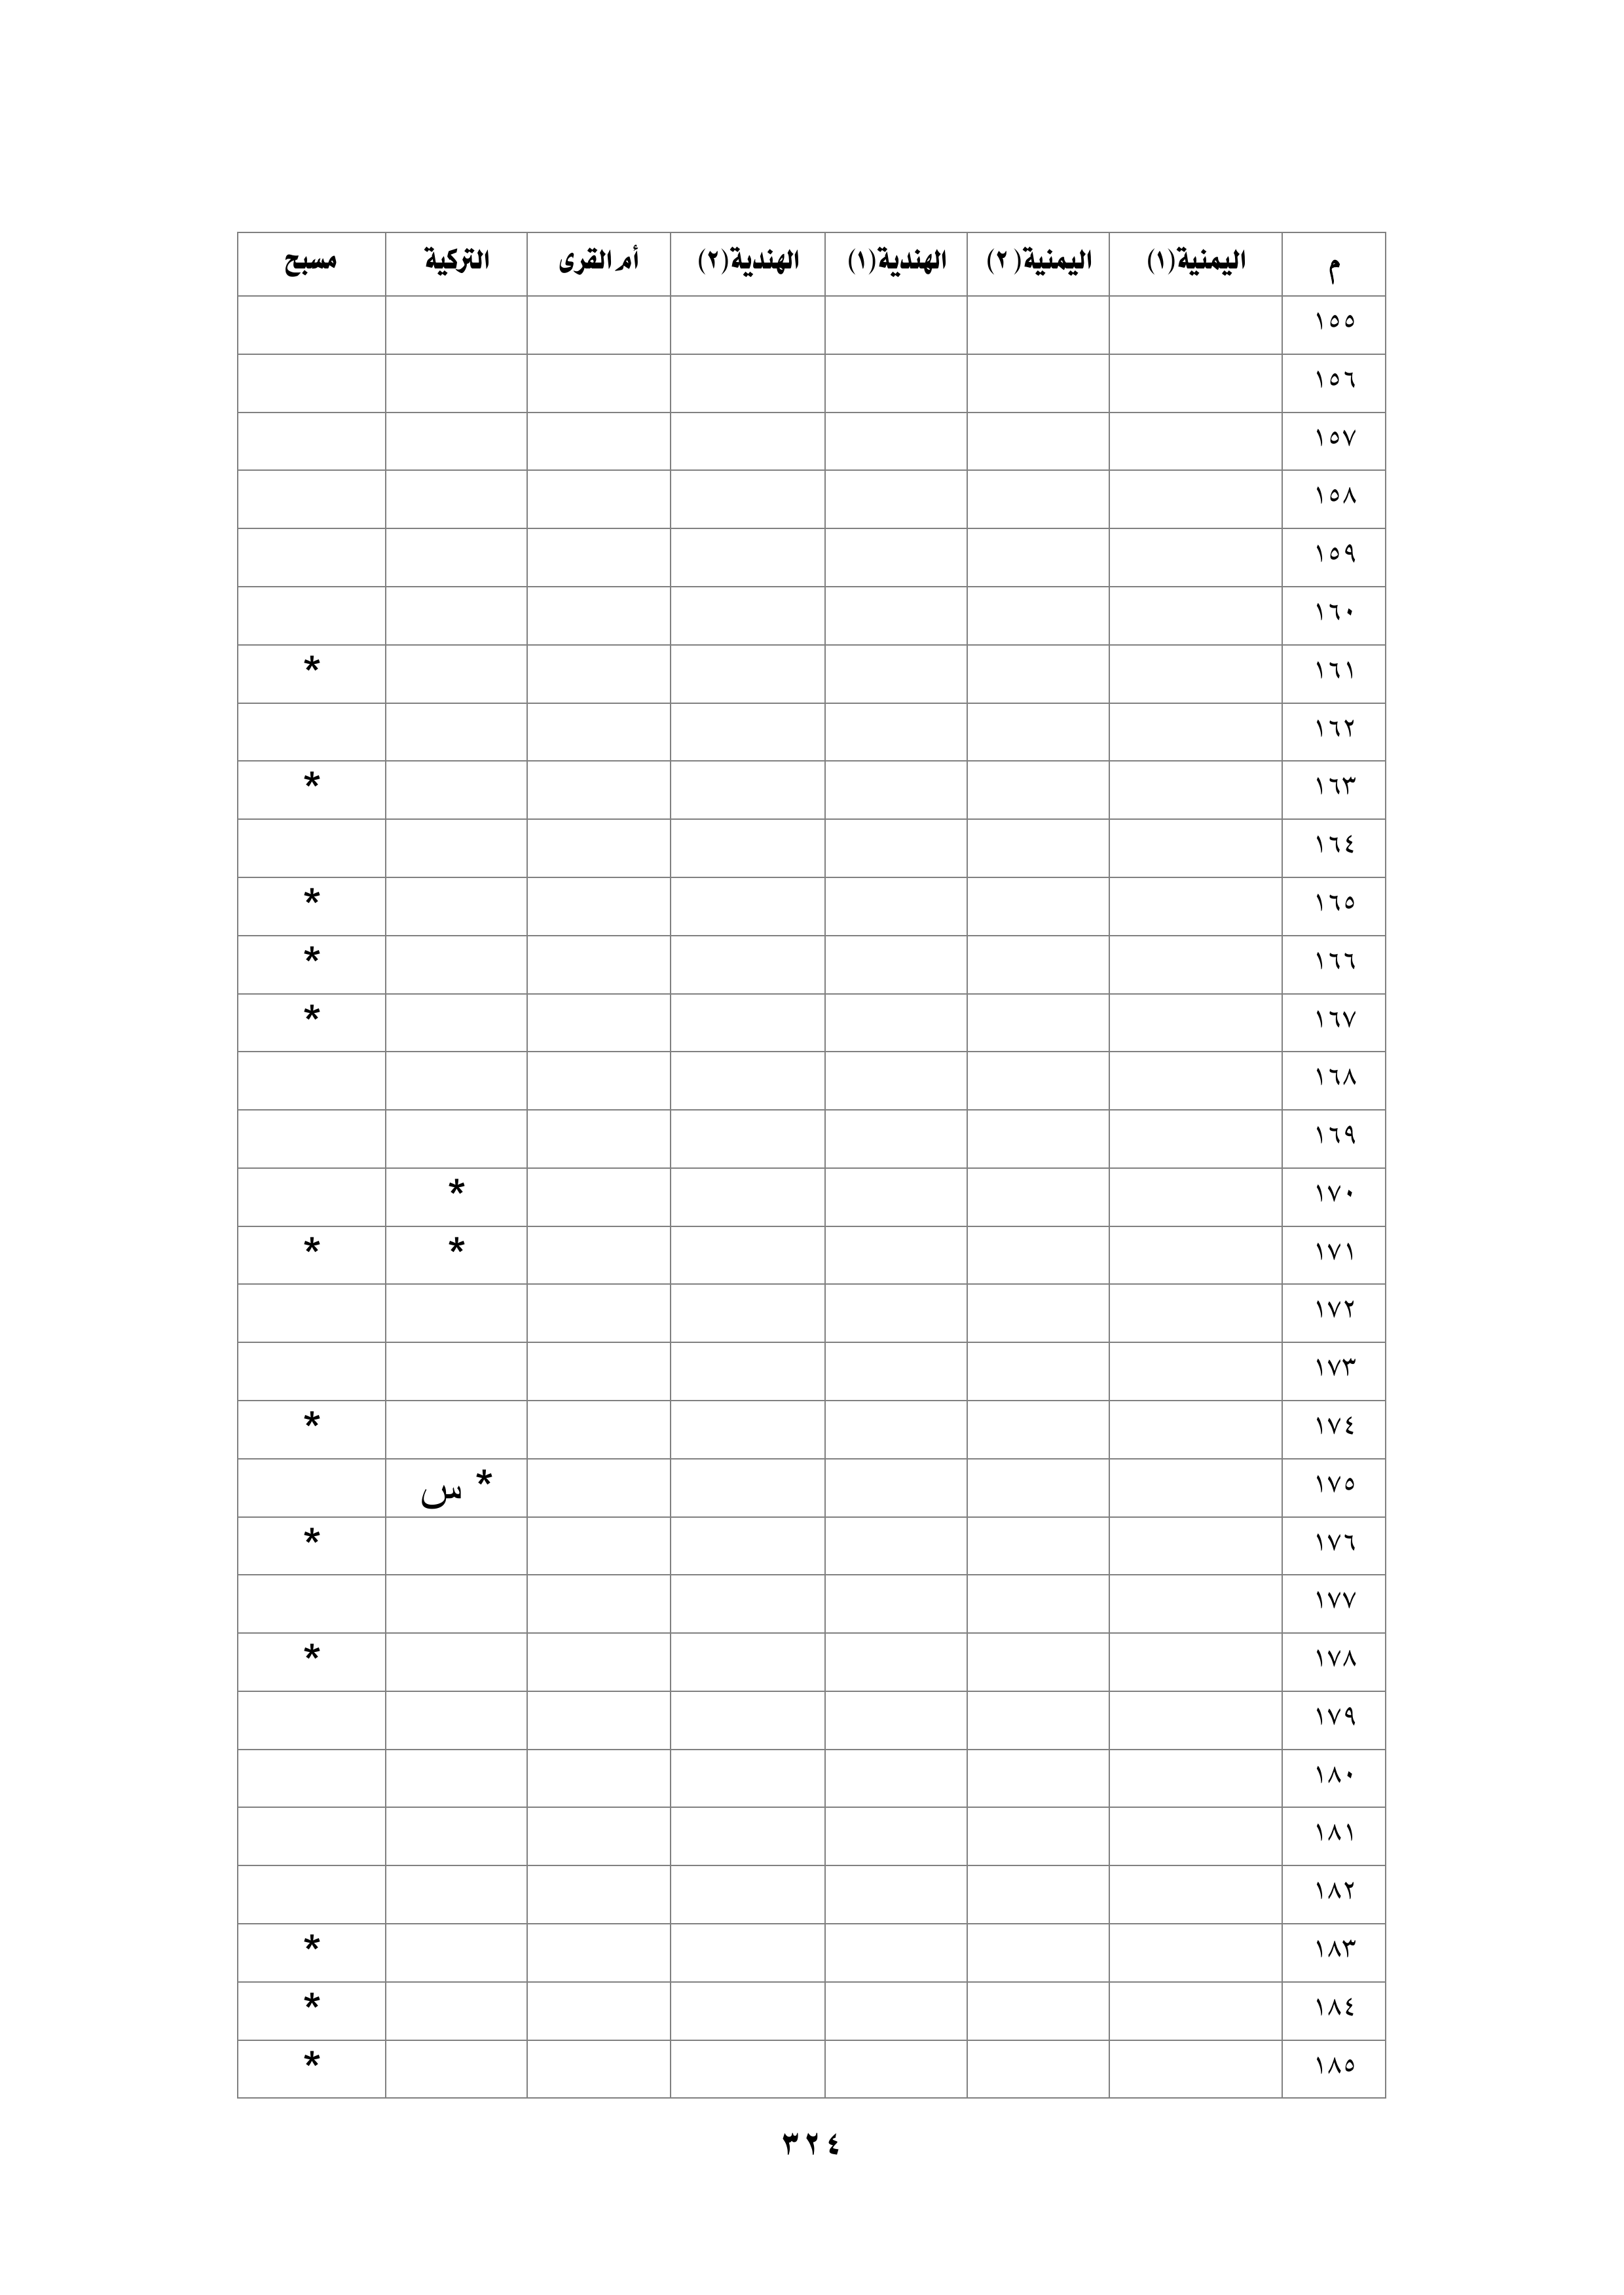 م اليمنية(١) اليمنية( ٢) الهندية(١) الهندية(٢) أم القرى التركية مسبح
١٥٥
١٥٦
١٥٧
١٥٨
١٥٩
١٦٠
١٦١ *
١٦٢
١٦٣ *
١٦٤
١٦٥ *
١٦٦ *
١٦٧ *
١٦٨
١٦٩
١٧٠ *
١٧١ * *
١٧٢
١٧٣
١٧٤ *
١٧٥ * س
١٧٦ *
١٧٧
١٧٨ *
١٧٩
١٨٠
١٨١
١٨٢
١٨٣ *
١٨٤ *
١٨٥ *
٣٢٤